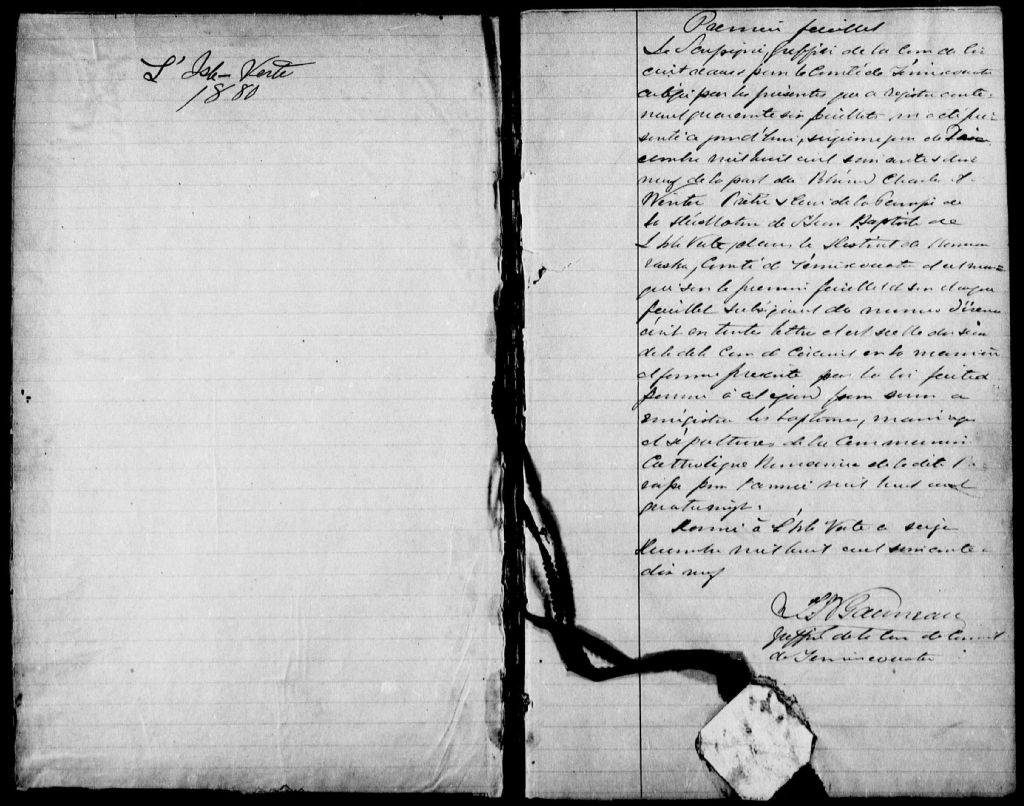 L'Isle-Verte
1880
Premier feuillet
Le Soussigné, Greffier de la Cour de Cir
cuit dans & pour le Comté de Témiscouata
certifie par les présentes que ce registre conte-
nant quarante six feuillets m'a été pré-
senté ce jourd'hui, seizième jour de Dé
cembre mil huit cent soixante & dix
neuf de la part du Révérend Charles A.
Winter Prêtre & Curé de la Paroisse de
St Jean Baptiste de
L'Isle Verte, dans le District de Kamou
raska, Comté de Témiscouata & est mar
qué sur le premier feuillet & sur chaque
feuillet subséquent du numéro d'icelui
écrit en toutes lettres et est scellé du sceau
de la dite Cour de Circuit en la manière
et forme prescrite par la loi faite &
pourvue à cet égard pour servir à
enregistrer les baptêmes, mariages
et sépultures de la Communion
Catholique Romaine de la dite Pa-
roisse pour l'année mil huit cent
quatrevingt.
Donné à L'Isle Verte ce seize
Décembre mil huit cent soixante &
dix neuf
Gauvreau
Greffier de la Cour de Circuit
de Témiscouata